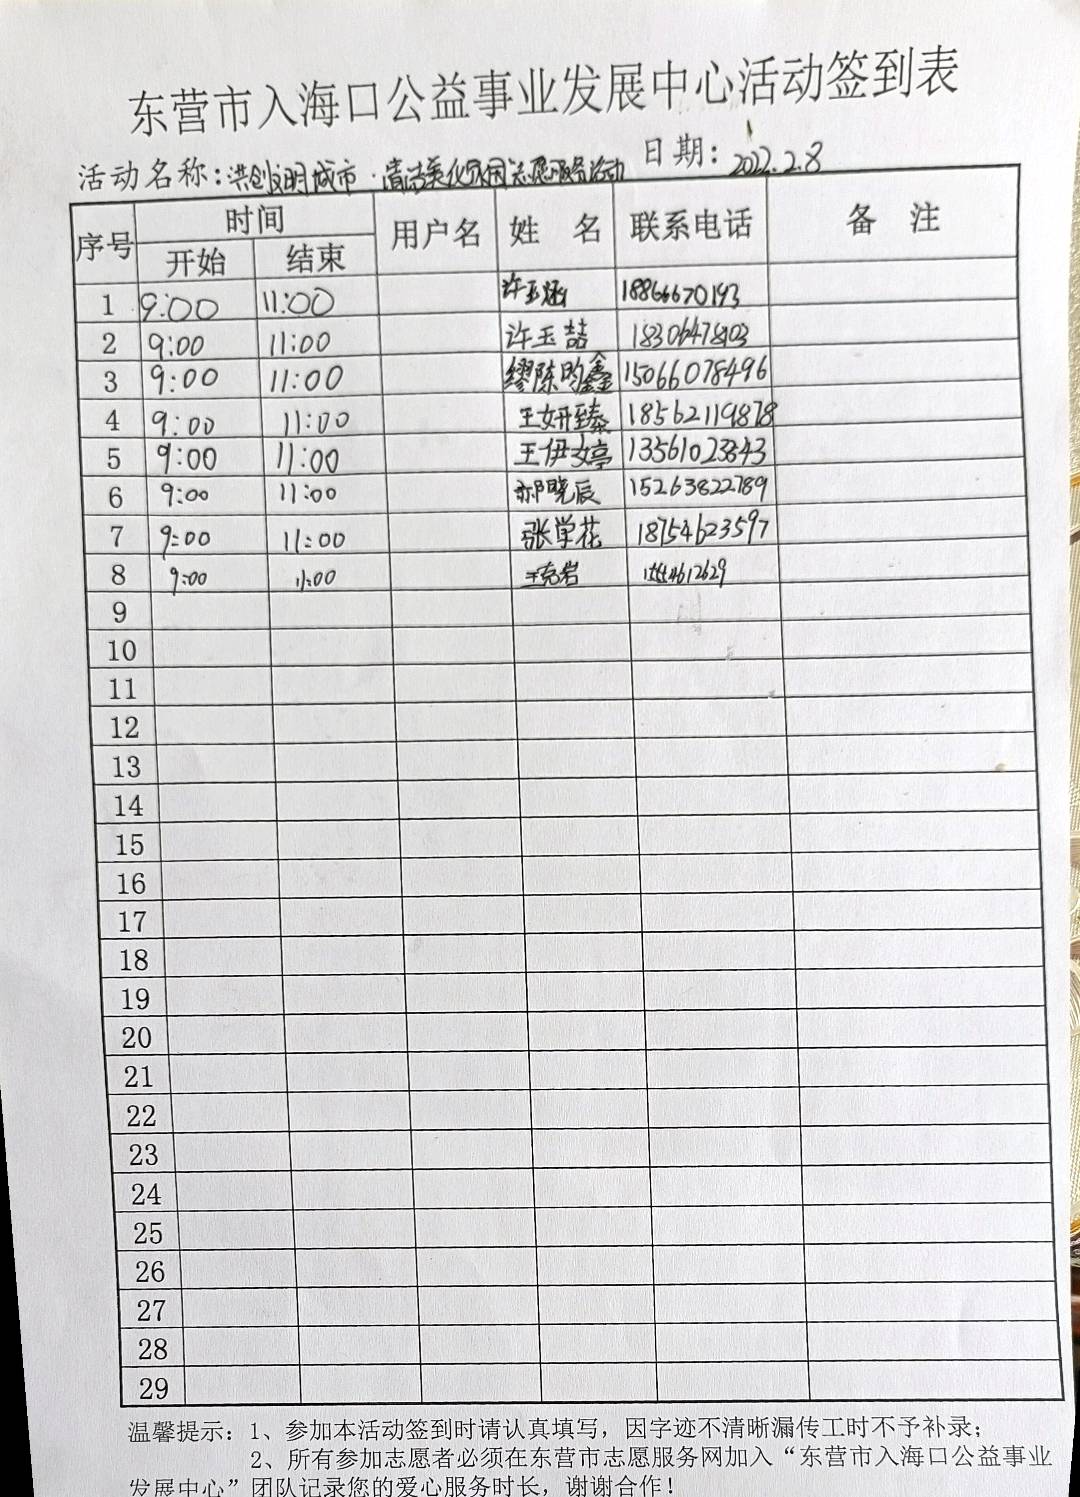 东营市入海口公益事业发展中心活动签到表
活动名称：洪创文明城市·清洁美化家园志愿服务活动 日期：2022.2.8
序号 时间 用户名 姓 名 联系电话 备 注
开始 结束
1 9:00 11:00 许玉涵 18866670193
2 9:00 11:00 许玉喆 18306478103
3 9:00 11:00 缪陈昀鑫 15066078496
4 9:00 11:00 王妍臻 18562119878
5 9:00 11:00 王伊婷 13561023843
6 9:00 11:00 郝晓辰 15263822789
7 9:00 11:00 张学花 18754623597
8 9:00 11:00
9
10
11
12
13
14
15
16
17
18
19
20
21
22
23
24
25
26
27
28
29
温馨提示：1、参加本活动签到时请认真填写，因字迹不清晰漏传工时不予补录；
2、所有参加志愿者必须在东营市志愿服务网加入“东营市入海口公益事业
发展中心”团队记录您的爱心服务时长，谢谢合作！